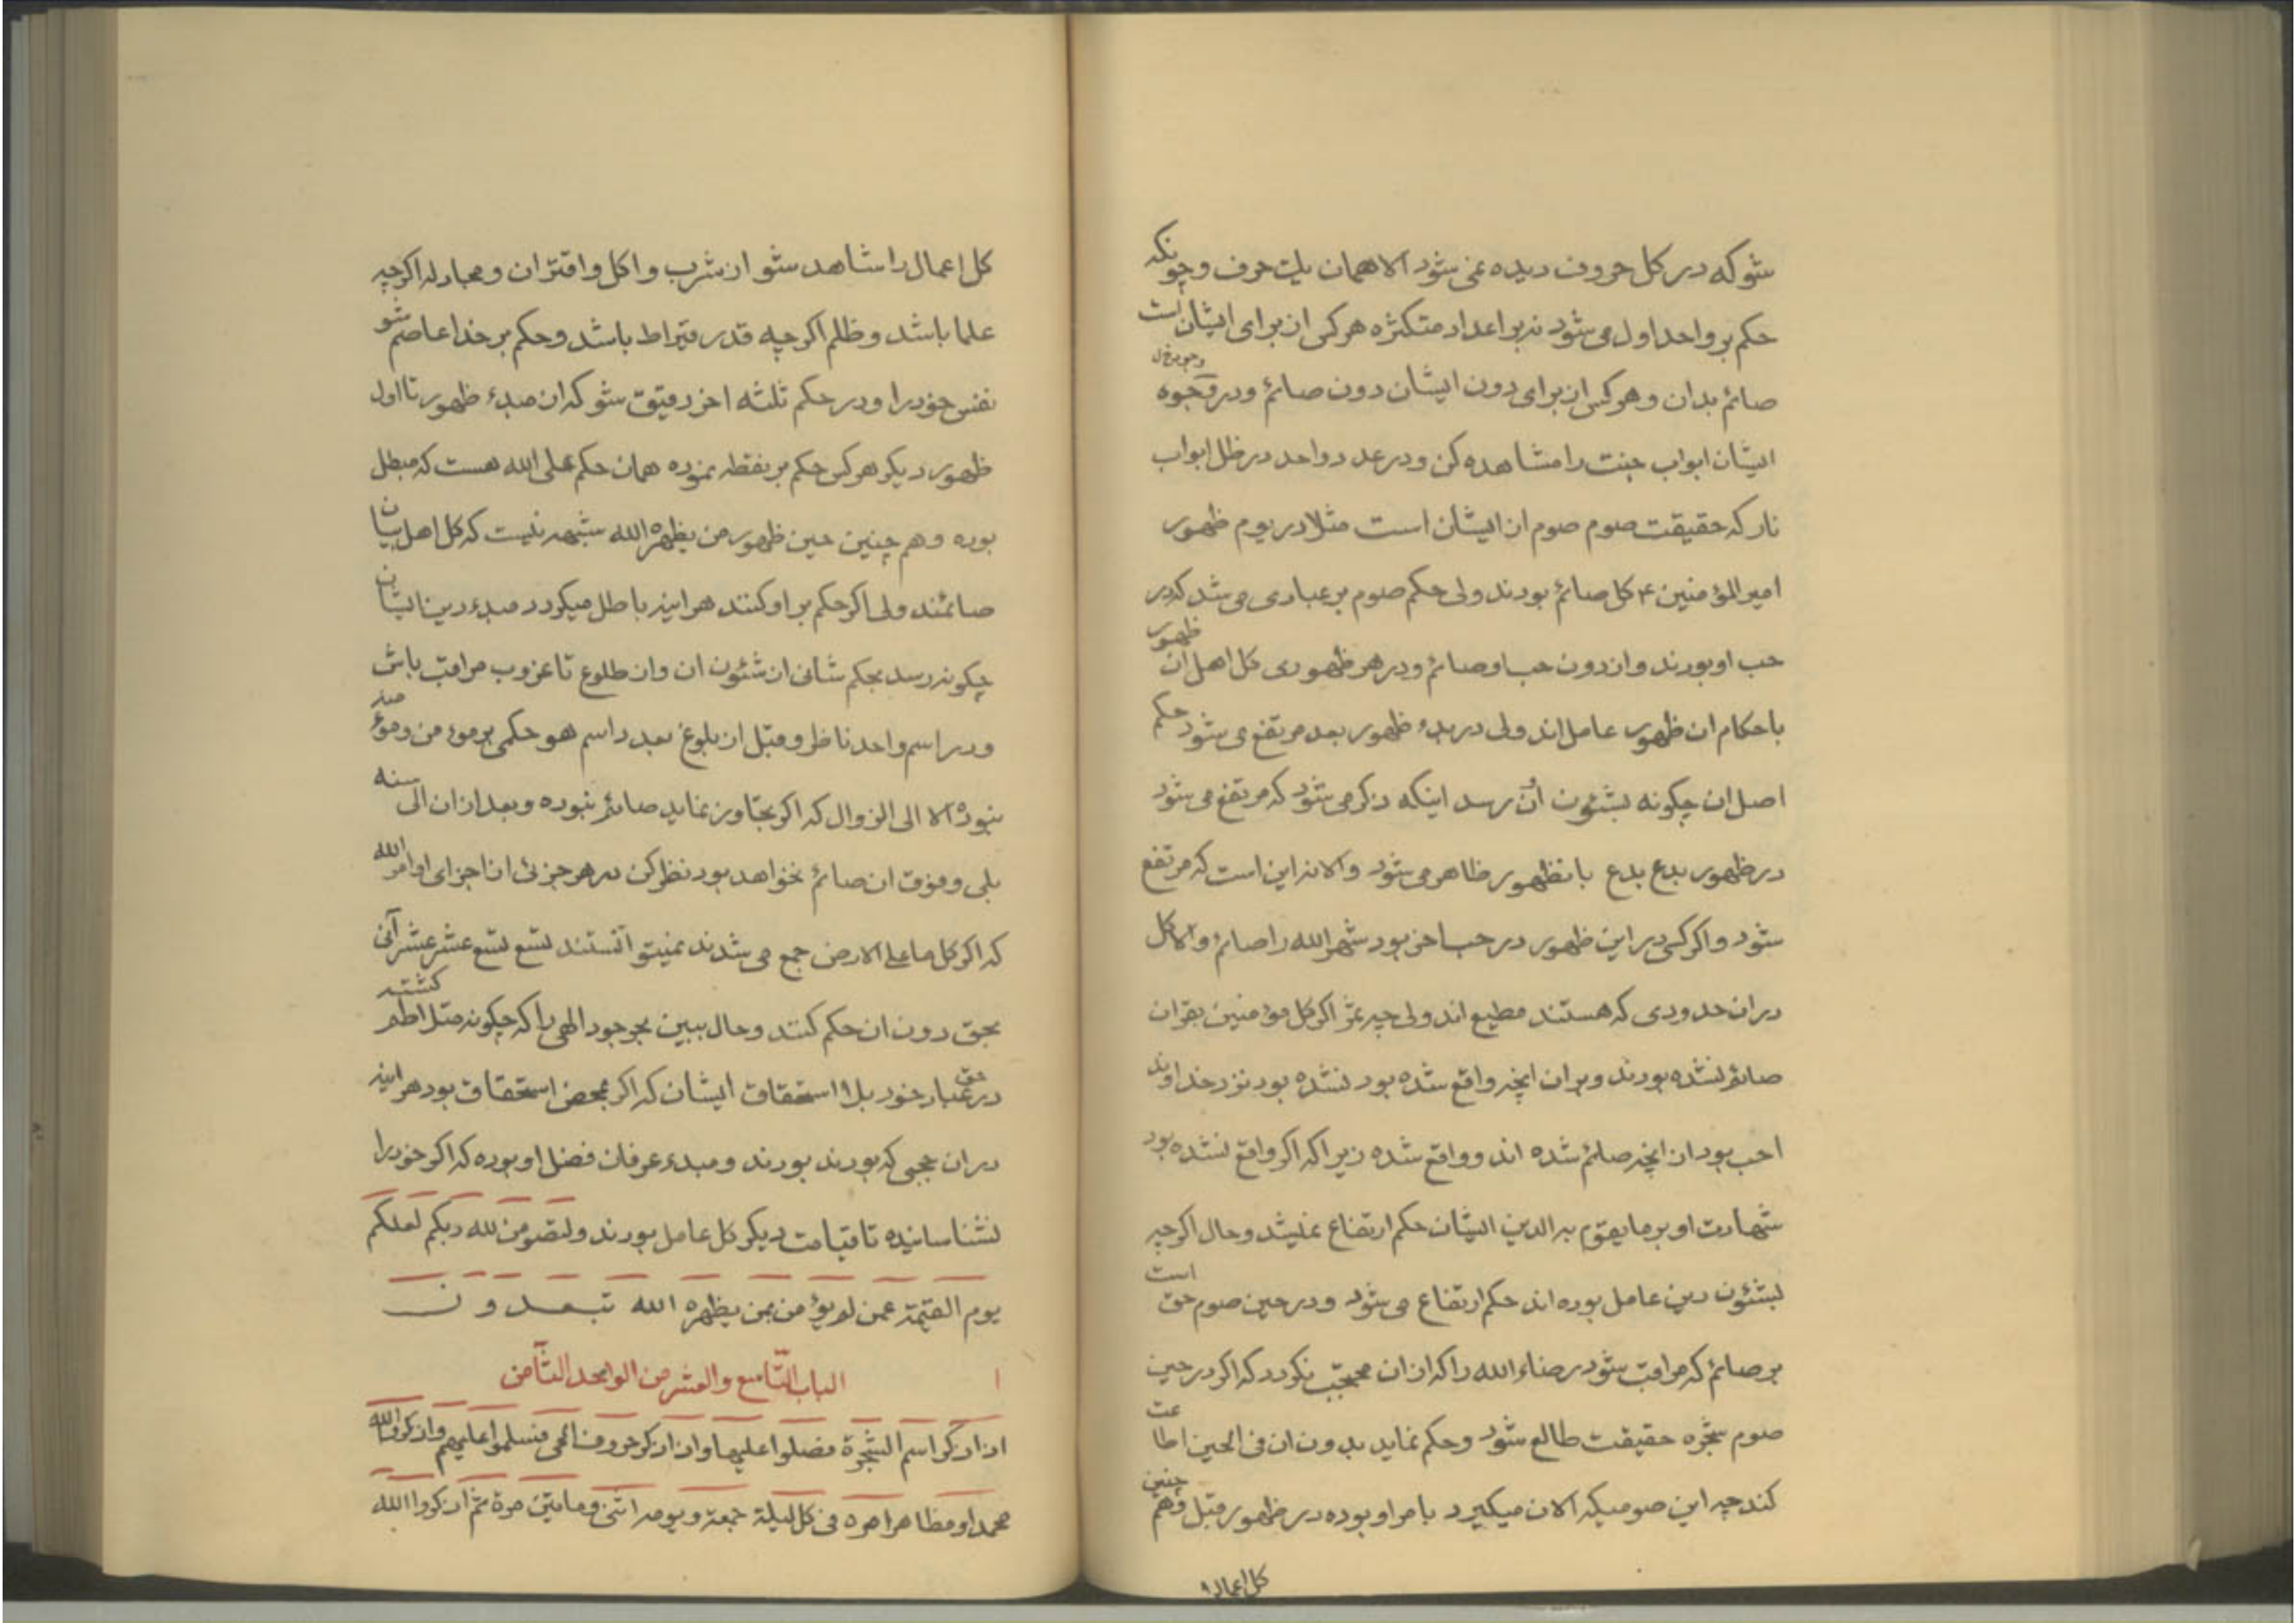 شو که در کل حروف دیده نمی شود الا همان یک حرف و چونکه
حکم بر واحد اول می شود نه بر اعداد متکثره هر کس از برای ایشان است
صائم بدان و هر کس از برای دون ایشان دون صائم و در وجوه
ایشان ابواب جنت را مشاهده کن و در عدد واحد در ظل ابواب
نار که حقیقت صوم صوم از ایشان است مثلا در یوم ظهور
امیر المؤمنین ۴ کل صائم بودند ولی حکم صوم بر عبادی می شد که در
حب او بودند و از دون حب او صائم و در هر ظهوری کل اهل ان ظهور
باحکام ان ظهور عامل اند ولی در بدء ظهور بعد مرتفع می شود حکم
اصل ان چگونه بشئون ان رسد اینکه ذکر می شود که مرتفع می شود
در ظهور بدع بدع بانظهور ظاهر می شود و الا نه این است که مرتفع
شود و اکر کسی در این ظهور در حب احن بود شهر الله را صائم و الا کل
در ان حدودی که هستند مطیع اند ولی چه ثمر اکر کل مؤمنین بقران
صائم نشده بودند و بر ان انچه واقع شده بود نشده بود نزد خداوند
احب بود از انچه صائم شده اند و واقع شده زیرا که اکر واقع نشده بود
شهادت او بر ما یقوم به الدین ایشان حکم ارتفاع نمیشد و حال اکر چه
بشئون دین عامل بوده اند حکم ارتفاع می شود و در حین صوم حق است
بر صائم که مراقب شود رضاء الله را که از ان محتجب نکردد که اکر در حین
صوم شجره حقیقت طالع شود و حکم نماید بدون ان فی الحین اطاعت
کند چه این صومیکه الان میکیرد بامر او بوده در ظهور قبل و هم چنین
کل اعمال را
کل اعمال را شاهد شو از شرب و اکل و اقتران و مجادله اکر چه
علما باشد و ظلم اکر چه قدر قیراط باشد و حکم بر خدا عاصم شو
نفس خود را و در حکم ثلثه اخر دقیق شو که از مبدء ظهور تا اول
ظهور دیکر هر کس حکم بر نقطه نموده همان حکم علی الله هست که مبطل
بوده و هم چنین حین ظهور من یظهره الله شبهه نیست که کل اهل بیان
صائمند ولی اکر حکم بر او کنند هر اینه باطل میکردد مبدء دین ایشان
چکونه رسد بحکم شانی از شئون ان و از طلوع تا غروب مراقب باش
و در اسم واحد ناظر و قبل از بلوغ بعدد اسم هو حکمی بر مؤمن و مؤمنه
نبوده الا الی الزوال که اکر تجاوز نماید صائم نبوده و بعد از ان الی سنه
بلی و فوق ان صائم نخواهد بود نظر کن در هر جزئی از اجزای اوامر الله
که اکر کل ما علی الارض جمع می شدند نمیتوانستند تسع تسع عشر عشر آنی
بحق دون ان حکم کنند و حال ببین بجود وجود الهی را که چکونه مثل اظهر کشته
در حق عباد خود بلا استحقاق ایشان که اکر بمحض استحقاق بود هر اینه
در ان حجبی که بودند بودند و مبدء عرفان فضل او بوده که اکر خود را
نشناسانیده تا قیامت دیکر کل عامل بودند ولتصومن لله ربکم لعلکم
یوم القیمة عمن لم یؤمن بمن یظهره الله تبعدون
الباب التاسع والعشر من الواحد الثامن
ان اذکر اسم الشجرة فصلوا علیها وان اذکر حروف الحی فسلموا علیهم وان کروا الله
محمدا و مظاهر امره فی کل لیلة جمعة و یومه اثنی و مایتین مرة ثم اذکروا الله